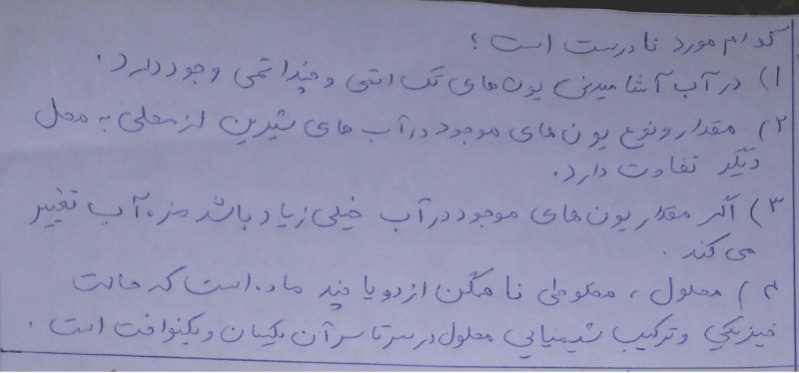 کدام مورد نادرست است ؟
۱) در آب آشامیدنی یون های تک اتمی و چند اتمی وجود دارد .
۲) مقدار و نوع یون های موجود در آب های شیرین از محلی به محل
دیگر تفاوت دارد .
۳) اگر مقدار یون های موجود در آب خیلی زیاد باشد مزه آب تغییر
می کند .
۴) محلول ، مخلوطی ناهمگن از دو یا چند ماده است که حالت
فیزیکی و ترکیب شیمیایی محلول در سرتاسر آن یکسان و یکنواخت است .